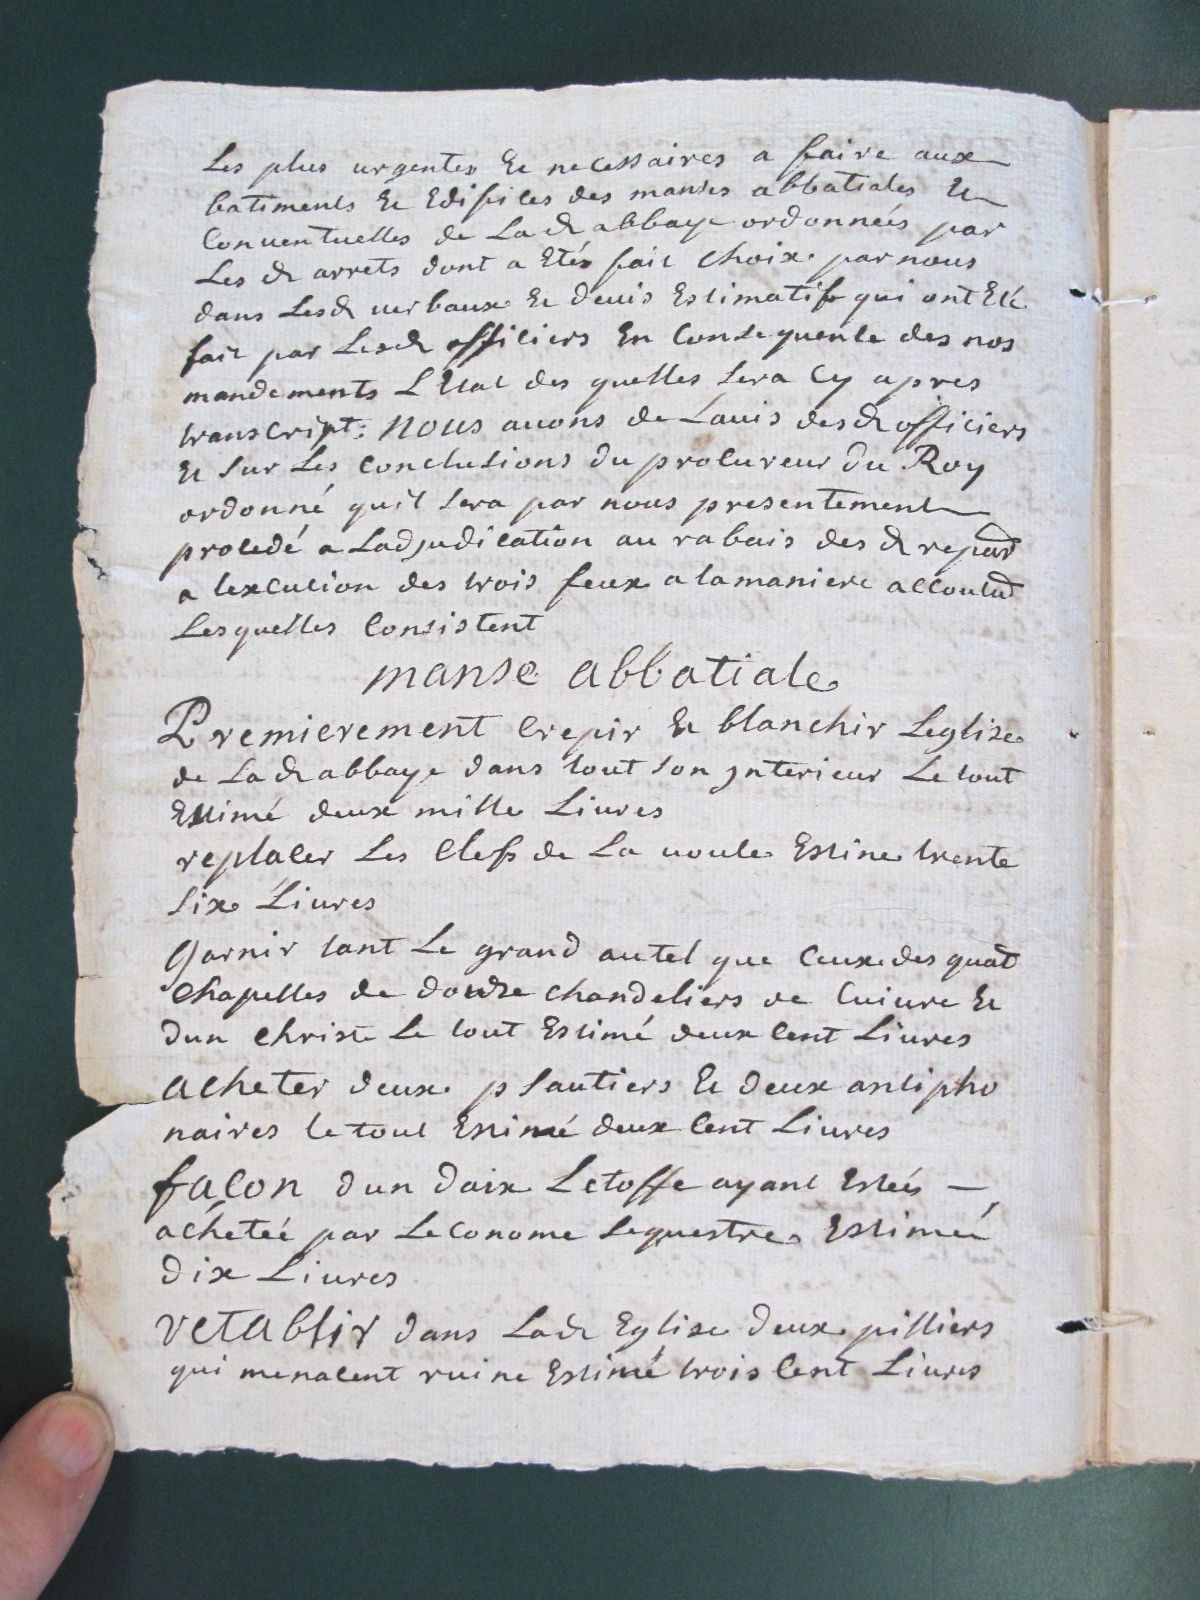 Les plus urgentes et necessaires a faire aux
batiments et Edifices des manses abbatiales et
Conventuelles de Lad abbaye ordonneés par
Les d arrets dont a Etés fait choix par nous
dans Lesd verbaux et devis Estimatifs qui ont Eté
fait par Lesd officiers En Consequence des nos
mandements L'Etat des quelles sera Cy apres
transcript: nous avons de Lavis desd officiers
et sur Les Conclusions du procureur du Roy
ordonné quil sera par nous presentement
procedé a Ladjudication au rabais des d repar
a lexcution des trois feux a la maniere accoutud
Lesquelles Consistent
manse abbatiale
Premierement Crepir et blanchir Leglise
de Lad abbaye dans tout son jnterieur Le tout
Estimé deux mille Livres
replacer Les Clefs de La voute Estime trente
six Livres
Garnir tant Le grand autel que Ceux des quat
Chapelles de doudze chandeliers de Cuivre et
dun Christ Le tout Estimé deux Cent Livres
acheter deux psautiers et deux antipho
naires le tout Estimé deux Cent Livres
façon dun daix Letoffe ayant Esteés —
achetée par Leconome sequestre Estimeé
dix Livres
retablir dans Lad Eglise deux pilliers
qui menacent ruine Estimé trois Cent Livres